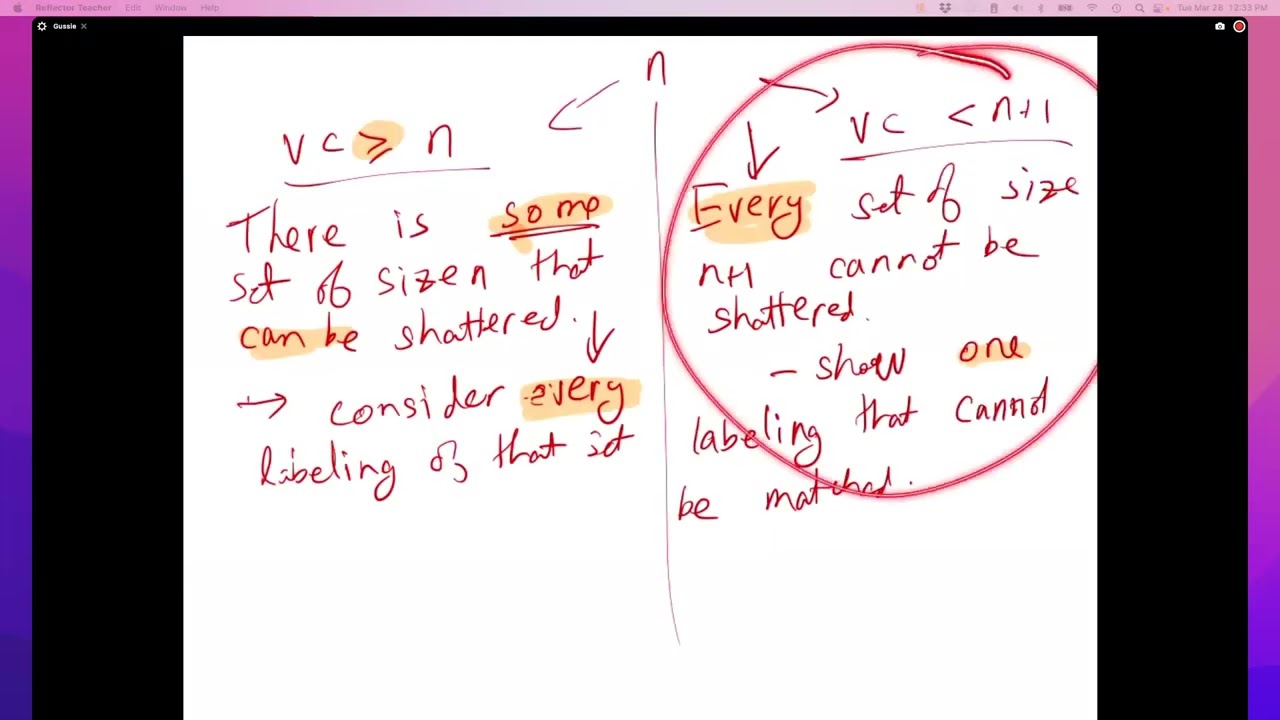 Reflector Teacher Edit Window Help
Tue Mar 28 12:33 PM
Gussie
n
vc ≥ n
There is some
set of size n that
can be shattered.
→ consider every
labeling of that set
vc < n+1
Every set of size
n+1 cannot be
shattered.
- show one
labeling that cannot
be matched.